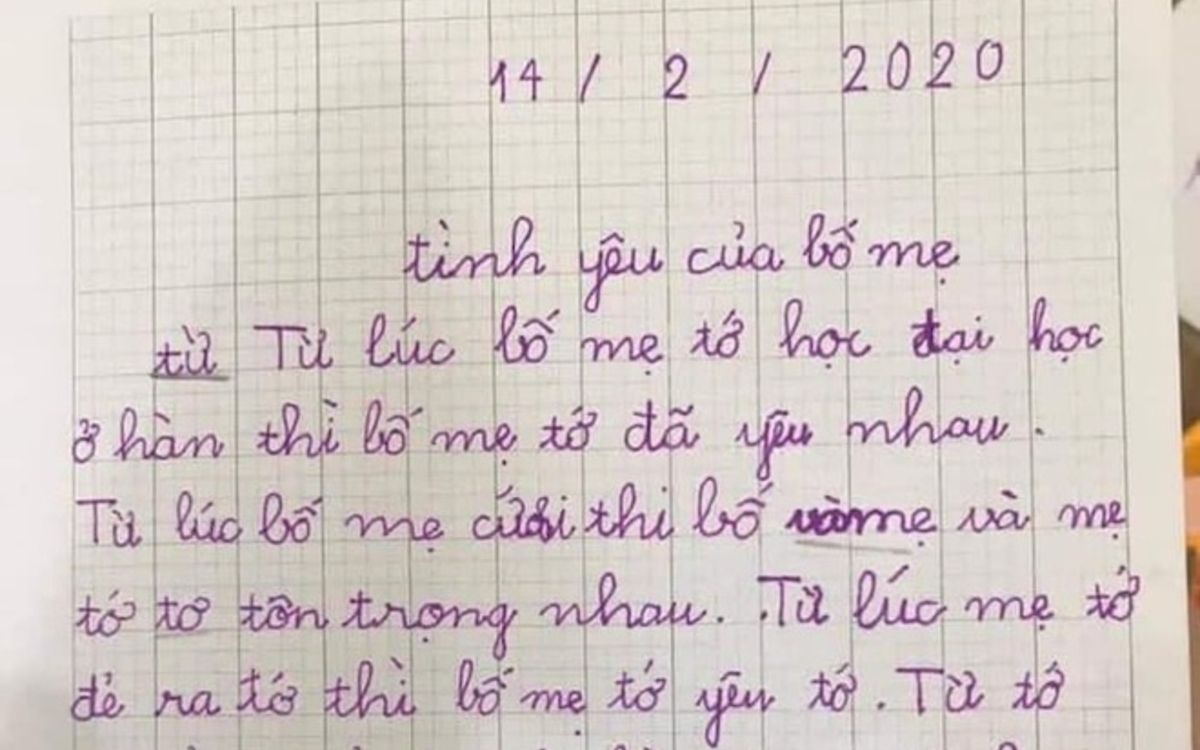 14 / 2 / 2020
tình yêu của bố mẹ
từ Từ lúc bố mẹ tớ học đại học
ở hàn thì bố mẹ tớ đã yêu nhau.
Từ lúc bố mẹ cứơi thì bố và mẹ và mẹ
tớ tơ tôn trọng nhau. Từ lúc mẹ tớ
đẻ ra tớ thì bố mẹ tớ yêu tớ. Từ tớ